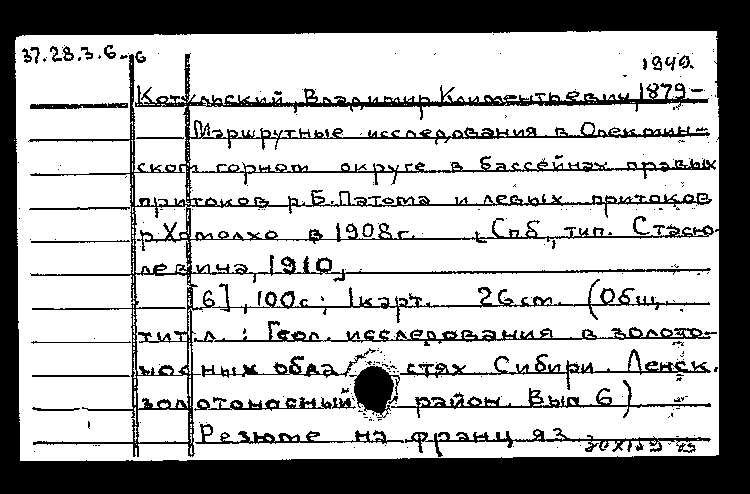 37.28.3.6-6
1940.
Котульский, Владимир Климентьевич, 1879-
Маршрутные исследования в Олекмин-
ском горном округе в бассейнах правых
притоков р.Б.Патома и левых притоков
р.Хомолхо в 1908г. [Спб, тип. Стасю-
левича, 1910]
[6], 100с; 1карт. 26см. (Общ.
тит.л.: Геол. исследования в золото-
носных областях Сибири. Ленск.
золотоносный район. Вып 6)
Резюме на франц яз